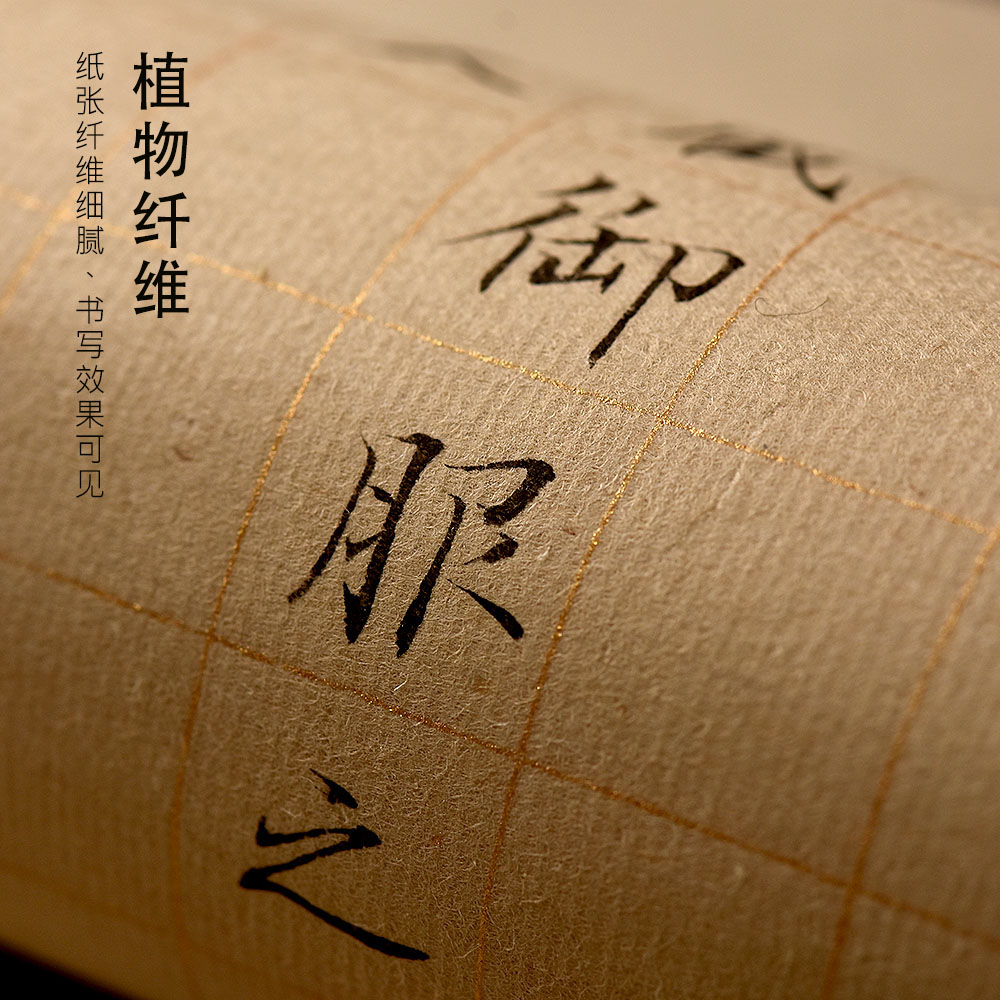 植物纤维
纸张纤维细腻、书写效果可见
御服之